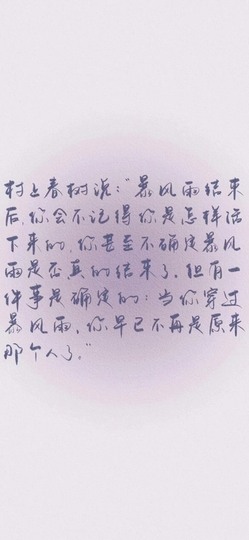 村上春树说：“暴风雨结束
后，你会不记得你是怎样活
下来的，你甚至不确定暴风
雨是否真的结束了。但有一
件事是确定的：当你穿过
暴风雨，你早已不再是原来
那个人了。”